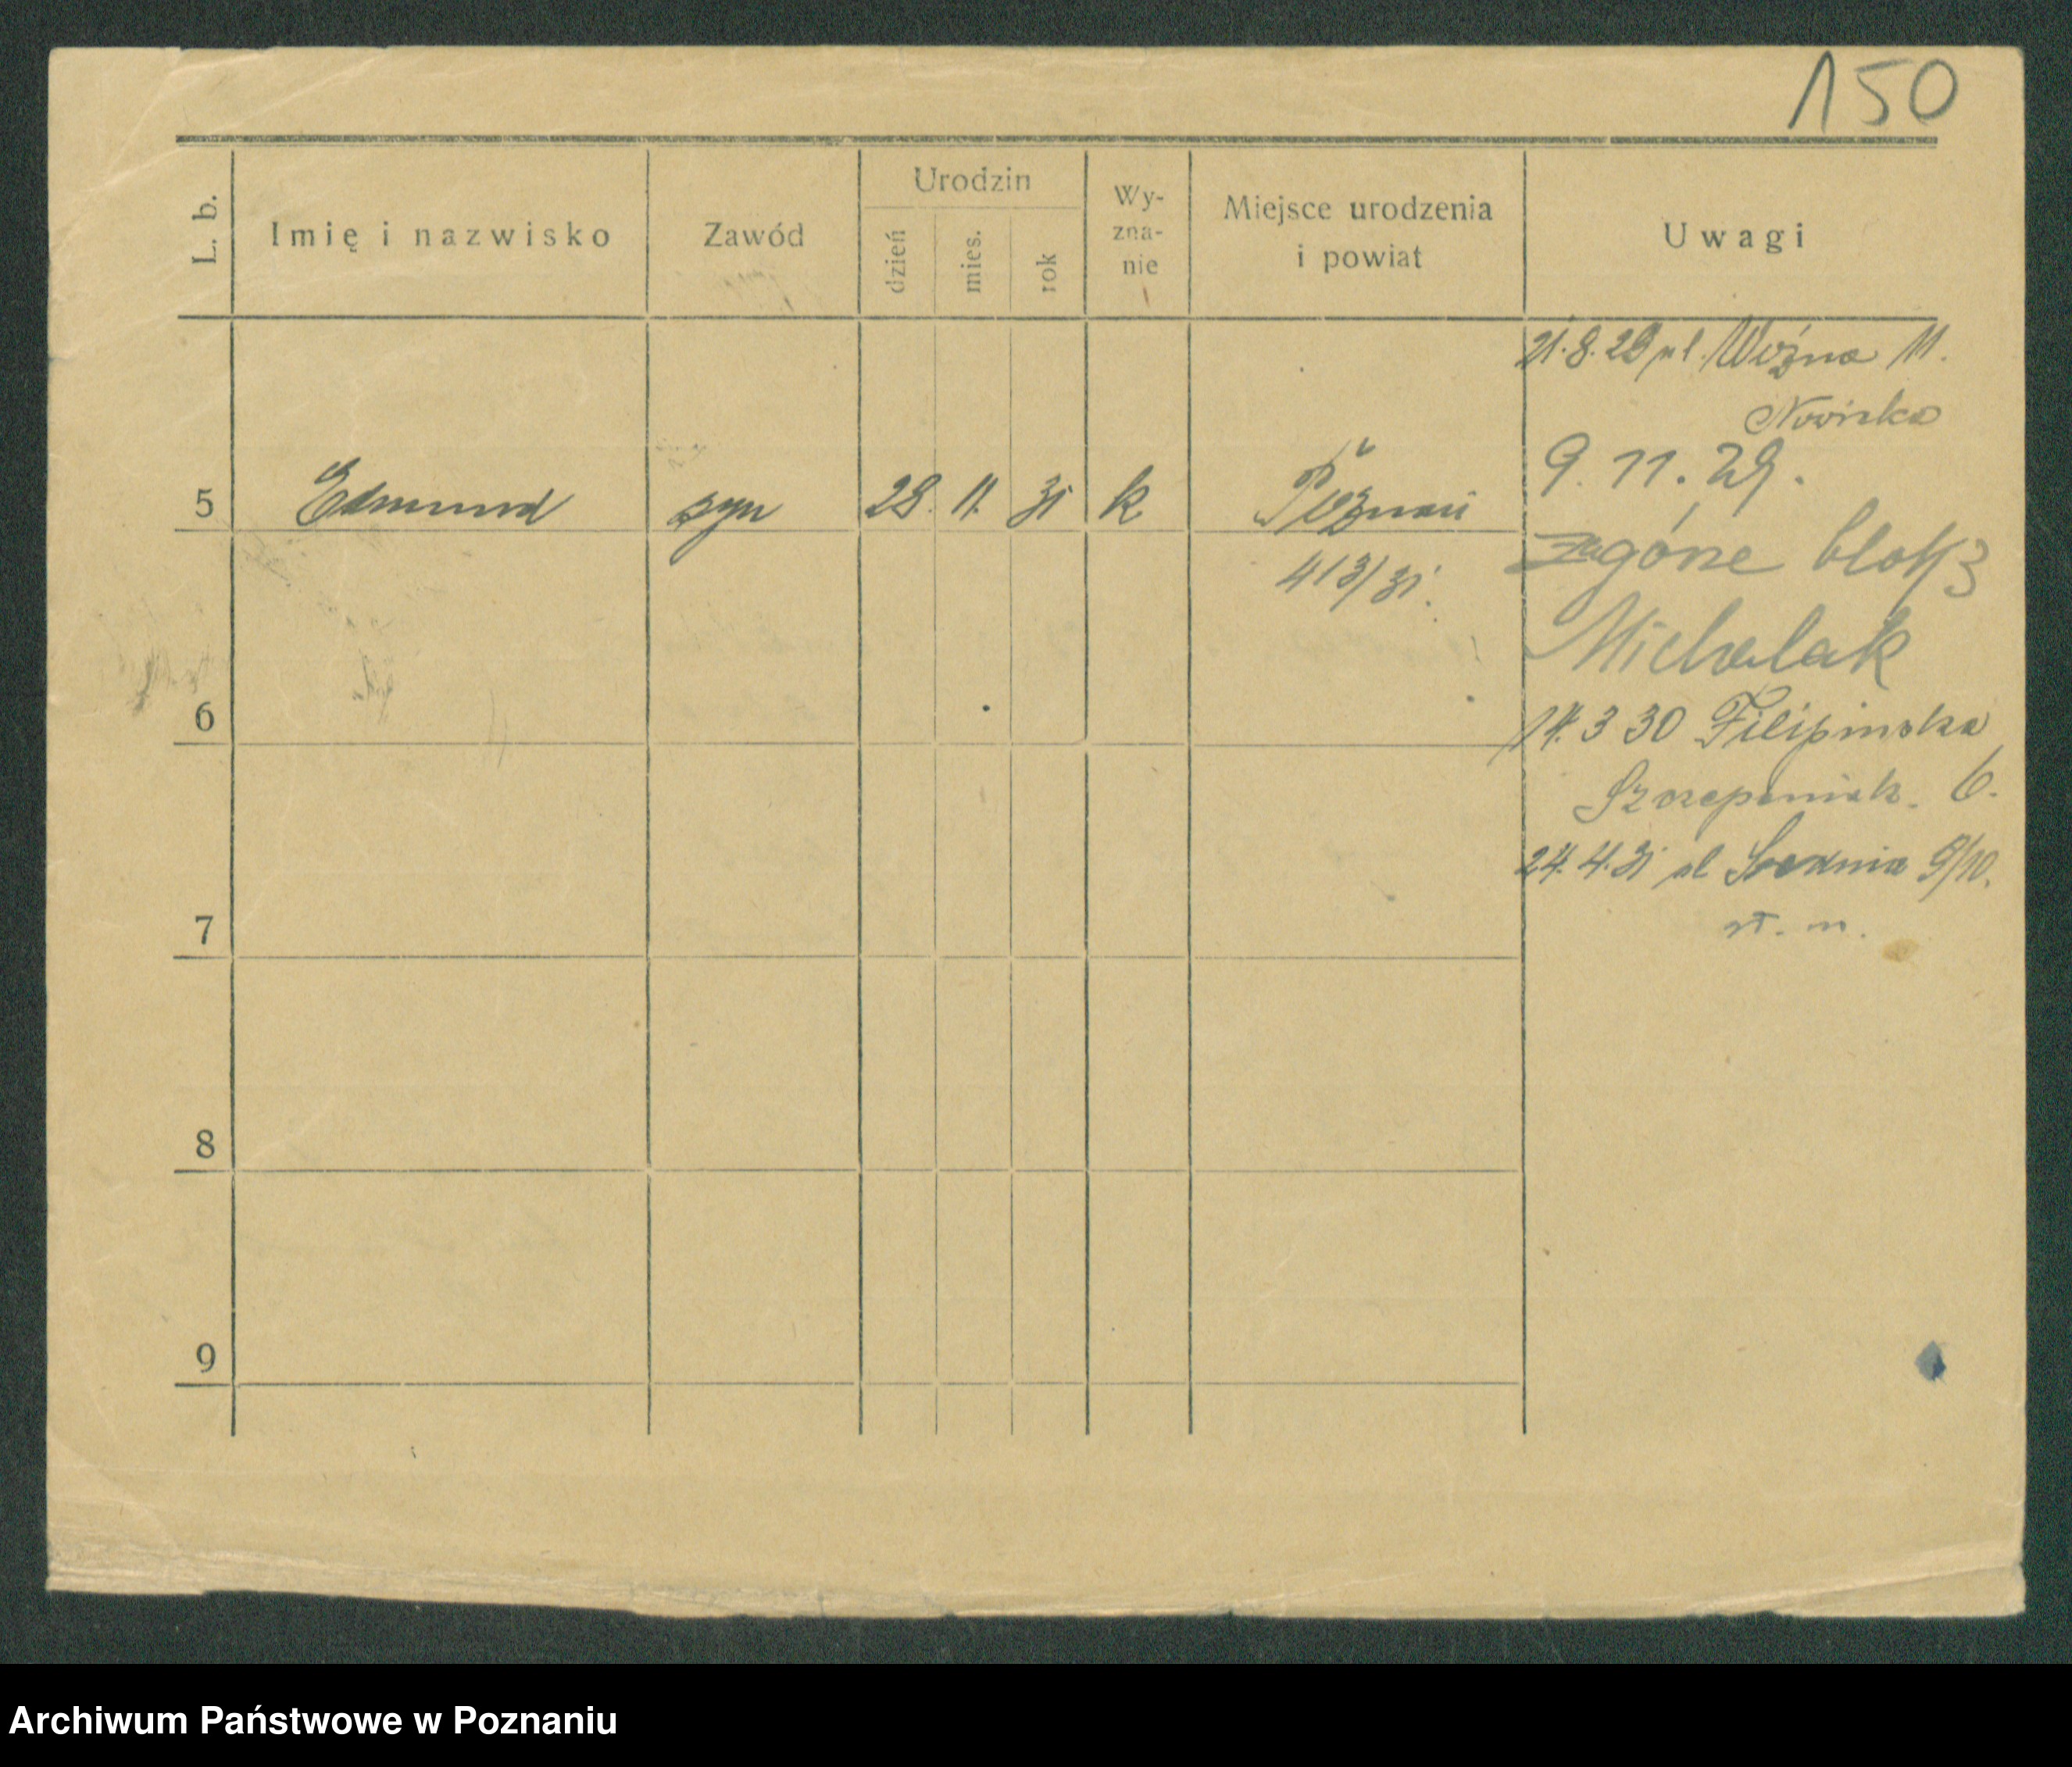 150
L. b.
Imię i nazwisko
Zawód
Urodzin
dzień
mies.
rok
Wy-
zna-
nie
Miejsce urodzenia
i powiat
Uwagi
21. 8. 29 ul. Woźna 11.
Nowicka
9. 11. 29.
Zagórze blok 3
Michalak
5 Edmund syn 28. 11. 31 k Poznań
413/31.
6
14. 3 30 Filipińska 6.
Szczepaniak.
24. 4. 31 ul Średnia 9/10.
st. m.
7
8
9
Archiwum Państwowe w Poznaniu